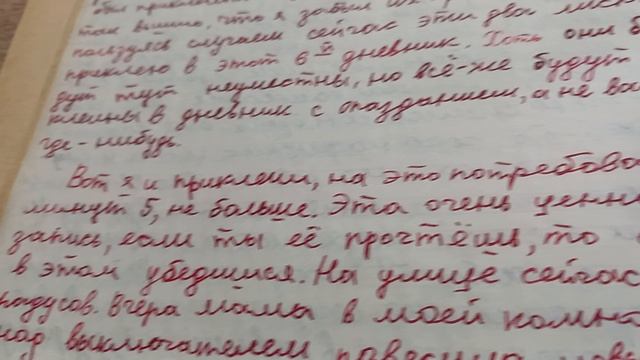 был приклеи
так вышло, что я забыл их
пользуясь случаем сейчас эти два
приклею в этот 6й дневник. Хоть они б
дут тут неуместны, но всё-же будут
клеины в дневник с опозданием, а не
где-нибудь.
Вот я и приклеил, на это потребова
минут 5, не больше. Эта очень ценн
запись, если ты её прочтёшь, то
в этом убедишся. На улице сейчас
радусов. Вчера мамы в моей комна
над выключателем повесила